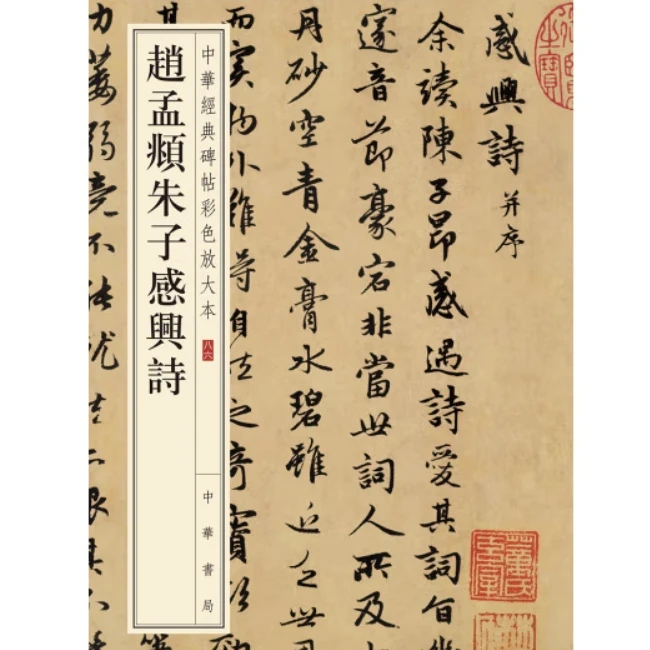 趙孟頫朱子感興詩
中華經典碑帖彩色放大本
八六
中華書局
感興詩 并序
余讀陳子昂感遇詩愛其詞旨幽
邃音節豪宕非當世詞人所及
丹砂空青金膏水碧雖近乏世
而實物外難得自然之奇寶欲
其
力萎弱竟不能就然亦恨其不